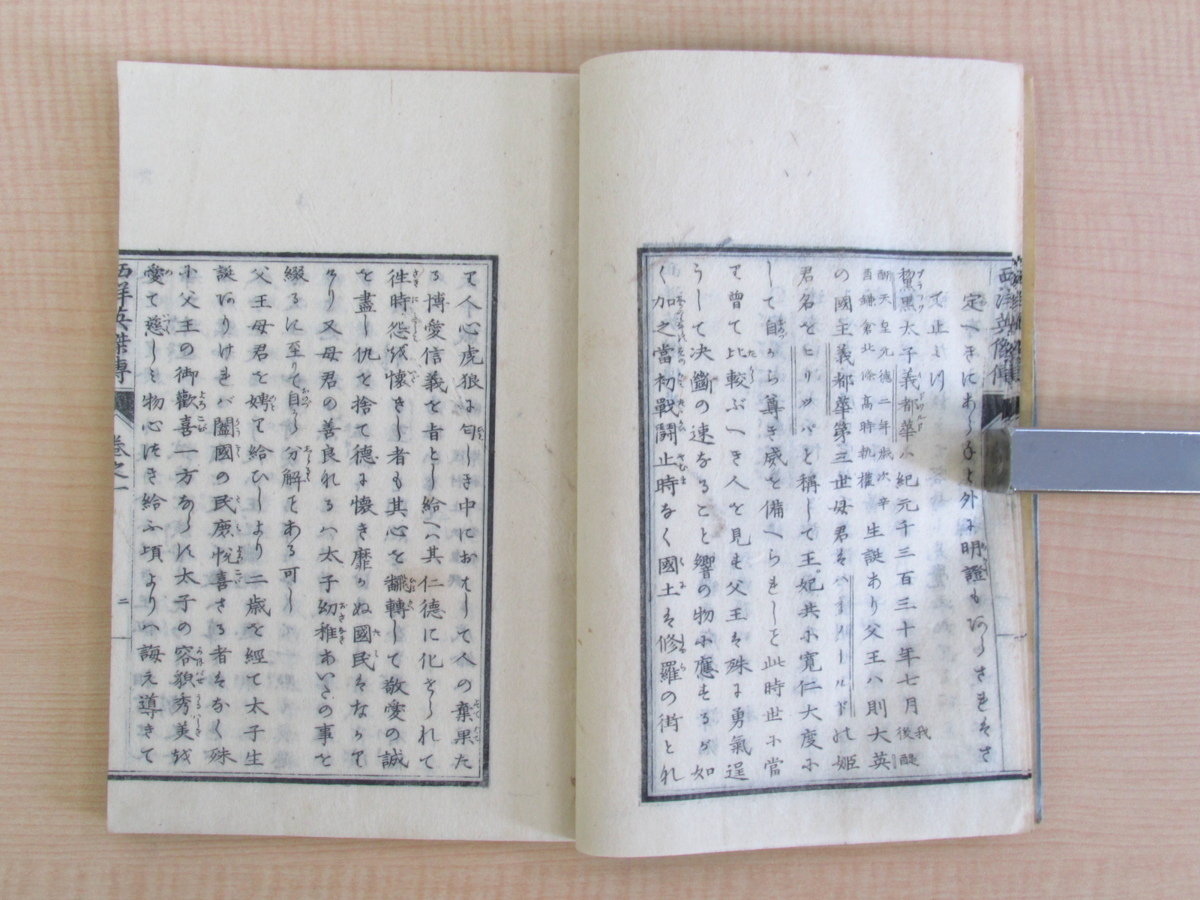 定へきにあらねと外に明證もあらされはさ
て止みつ
黎黑太子義都華ハ紀元千三百三十年七月我後醍
醐天皇元德二年歲次辛
酉鎌倉北條高時執權生誕あり父王ハ則大英
の國王義都華第三世母君ハ の姬
君名をヒリッパと稱して王妃共に寬仁大度に
して自から尊き威を備へられしを此時世に當
て曾て比較ふへき人を見も父王は殊に勇氣逞
うして決斷の速なること響の物に應するか如
く加之當初戰鬪止時なく國土は修羅の街とれ
て人心虎狼に勾しき中におはして人の棄果た
る博愛信義を旨とし給へハ其仁德に化せられて
徃時怨を懷きし者も其心を飜轉して敬愛の誠
を盡し仇を捨て德に懷き靡かぬ國民はなかり
けり又母君の善良れるハ太子幼稚あいさの事を
綴るに至りて自から分解をある可し
父王母君を娉て給ひしより二歲を經て太子生
誕ありけれハ闔國の民慶悅喜さる者はなく殊
に父王の御歡喜一方ならに太子の容貌秀美を
愛て慈しミ物心つき給ふ頃よりハ誨え導きて
西洋英傑傳
卷之一
二